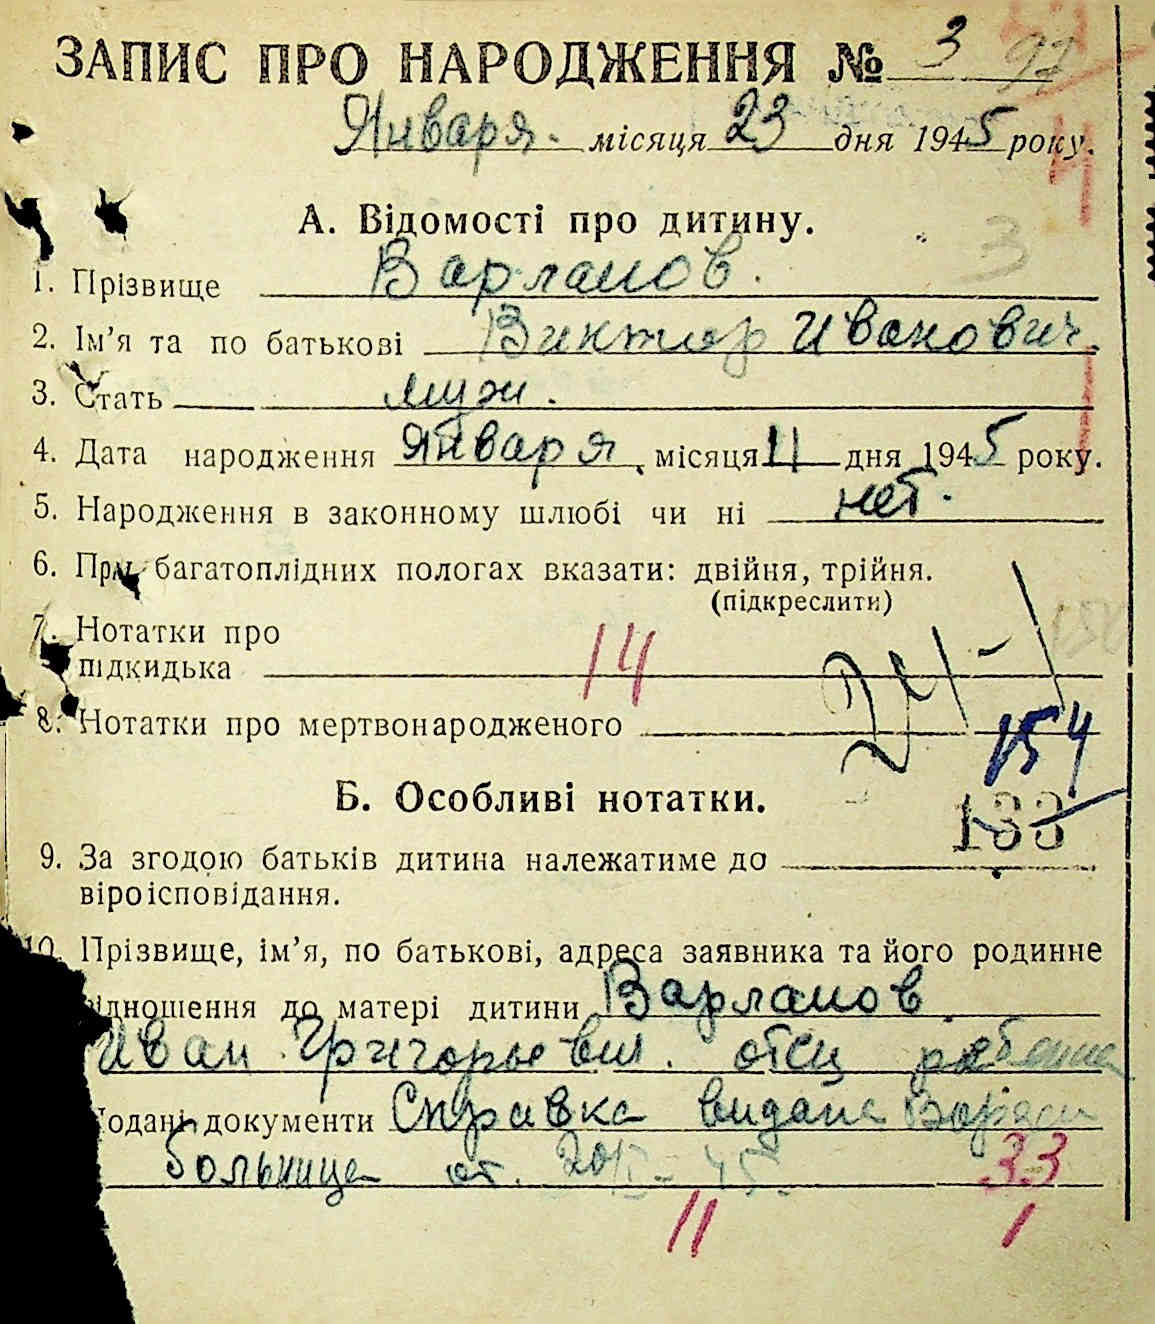 ЗАПИС ПРО НАРОДЖЕННЯ № 3 97
Января. місяця 23 дня 1945 року.
А. Відомості про дитину.
3
1. Прізвище Варламов.
2. Ім'я та по батькові Виктор Иванович.
3. Стать муж.
4. Дата народження Января місяця 11 дня 1945 року.
5. Народження в законному шлюбі чи ні нет.
6. При багатоплідних пологах вказати: двійня, трійня.
(підкреслити)
7. Нотатки про
підкидька 14
8. Нотатки про мертвонародженого
154
Б. Особливі нотатки.
133
9. За згодою батьків дитина належатиме до
віроісповідання.
10. Прізвище, ім'я, по батькові, адреса заявника та його родинне
відношення до матері дитини Варламов
Иван Григорьевич. отец ребенка
Подані документи Справка видана
больнице от. 20
33
11 1